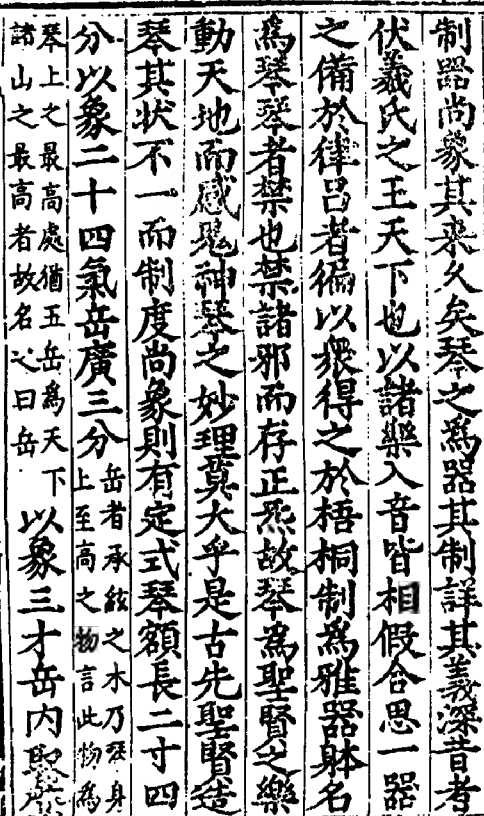 制器尚象其来久矣琴之爲器其制詳其義深昔考
伏羲氏之王天下也以諸樂入音皆相假合思一器
之備於律吕者徧以衆得之於梧桐制爲雅器躰名
爲琴琴者禁也禁諸邪而存正炁故琴爲聖賢之樂
動天地而感鬼神琴之妙理莫大乎是古先聖賢造
琴其状不一而制度尚象則有定式琴額長二寸四
分以象二十四氣岳廣三分
岳者承絃之木乃琴身
上至高之物言此物爲
琴上之最高處猶五岳爲天下
諸山之最高者故名之曰岳
以象三才岳内